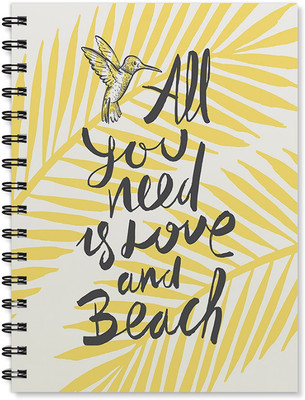 All
you
need
is Love
and
Beach